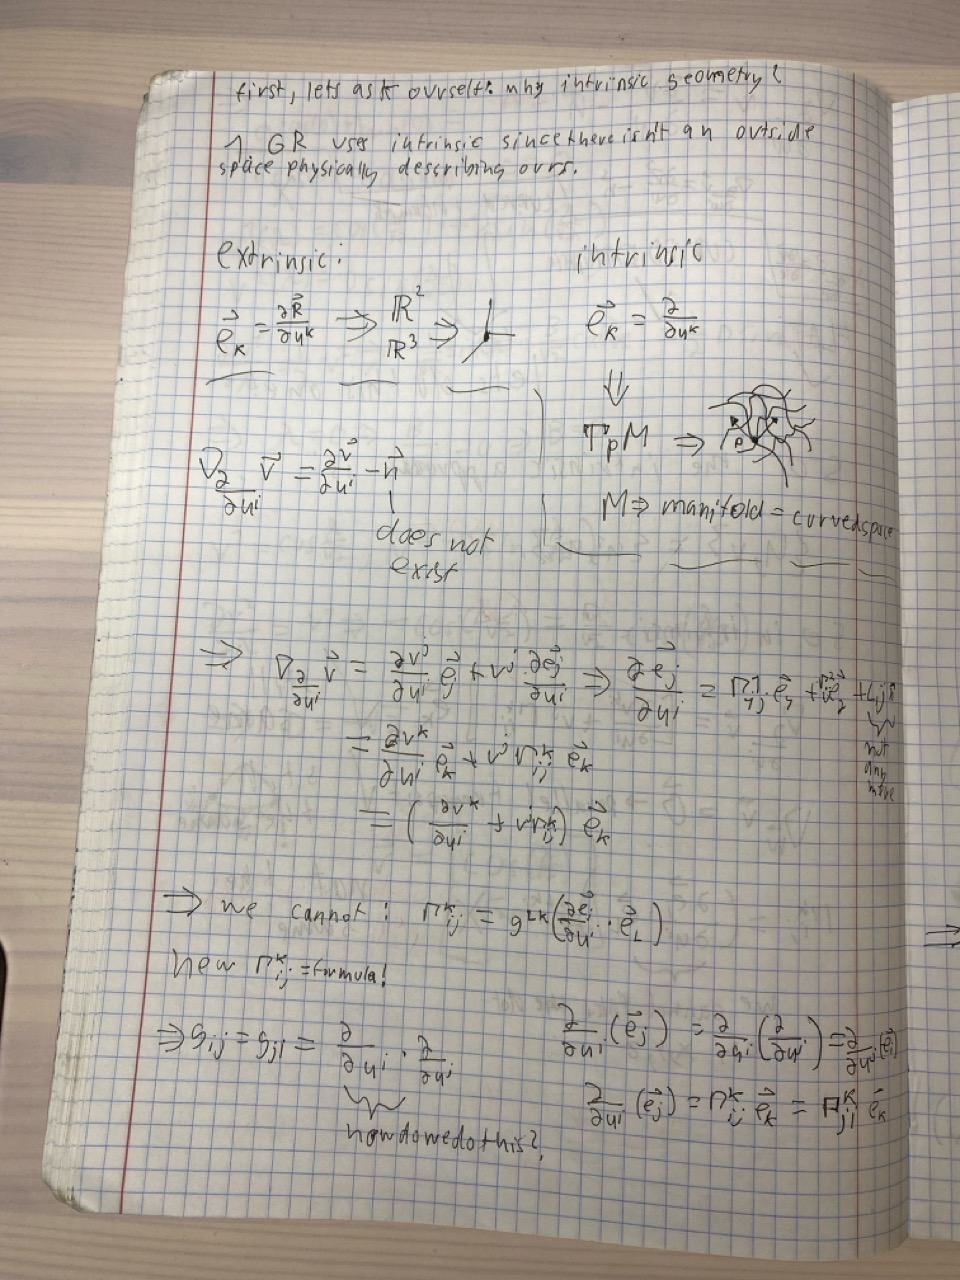 first, lets ask ourself: why intrinsic geometry?
1. GR uses intrinsic since there isn't an outside
space physically describing ours.
extrinsic:
e⃗_k = ∂R⃗/∂u^k ⇒ ℝ² ℝ³ ⇒
∇_{∂/∂u^i} v⃗ = ∂v⃗/∂u^i − n⃗
does not
exist
intrinsic
e⃗_k = ∂/∂u^k
⇓
T_pM ⇒ p
M ⇒ manifold = curved space
⇒ ∇_{∂/∂u^i} v⃗ = ∂v^j/∂u^i e⃗_j + v^j ∂e⃗_j/∂u^i ⇒ ∂e⃗_j/∂u^i = Γ^1_{ij} e⃗_1 + Γ^2_{ij} e⃗_2 +
not
any
more
= ∂v^k/∂u^i e⃗_k + v^j Γ^k_{ij} e⃗_k
= (∂v^k/∂u^i + v^j Γ^k_{ij}) e⃗_k
⇒ we cannot: Γ^k_{ij} = g^{lk} (∂e⃗_j/∂u^i · e⃗_l)
new Γ^k_{ij} = formula!
⇒ g_{ij} = g_{ji} = ∂/∂u^i · ∂/∂u^j
how do we do this?
∂/∂u^i (e⃗_j) = ∂/∂u^i (∂/∂u^j) = ∂/∂u^j (e⃗_i)
∂/∂u^i (e⃗_j) = Γ^k_{ij} e⃗_k = Γ^k_{ji} e⃗_k